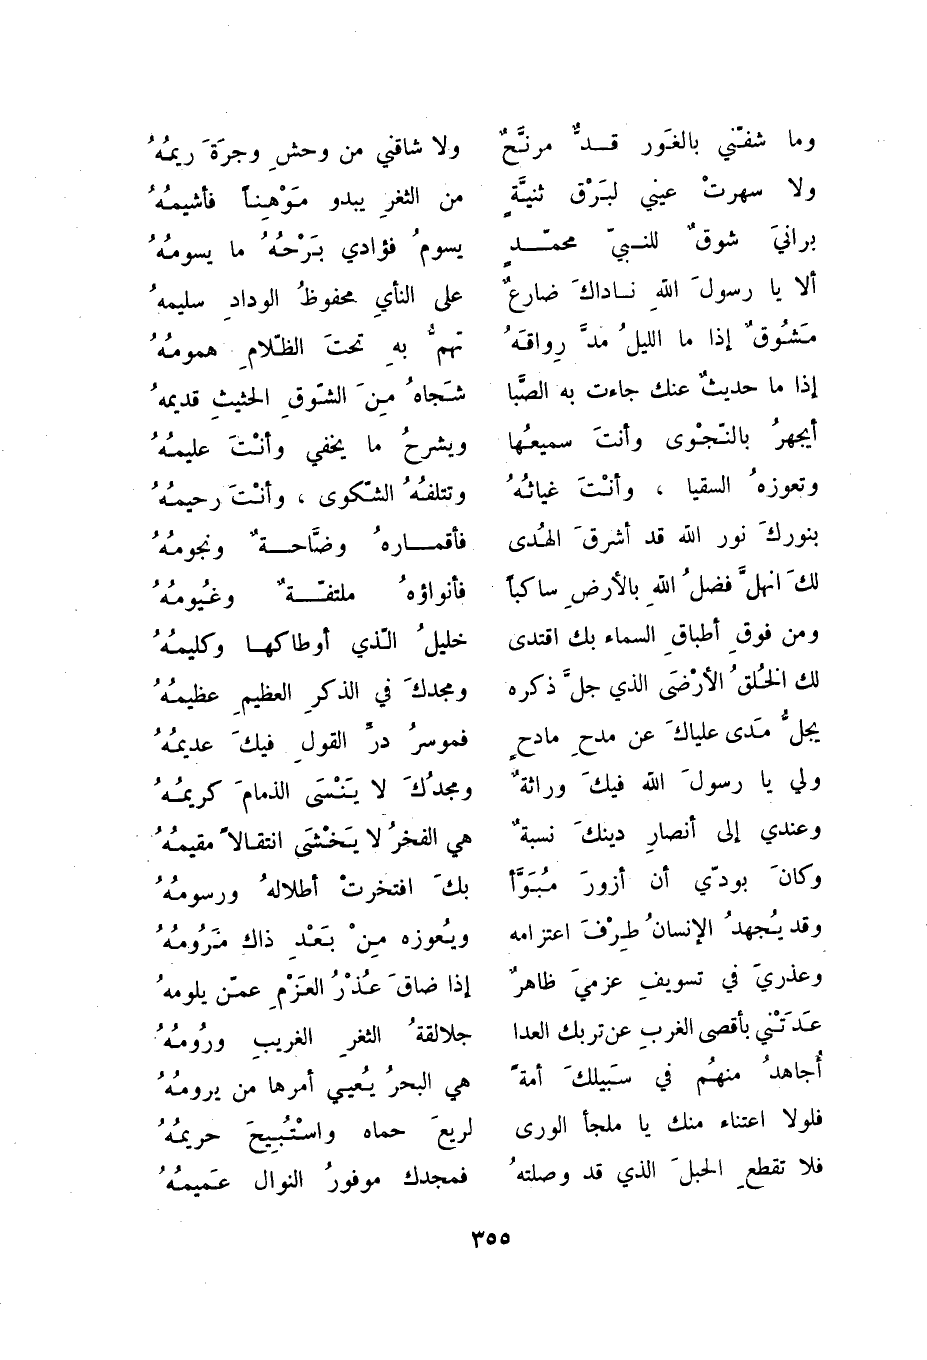 وما شفّني بالغَور قـــدٌّ مرنَّحٌ ولا شاقني من وحشِ وجرَةَ ريمُهُ
ولا سهرتْ عيني لبَرْق ثنيَّةٍ من الثغرِ يبدو مَوْهِناً فأشيمُهُ
برانيَ شوقٌ للنبيّ محمّـــدٍ يسومُ فؤادي بَرْحُهُ ما يسومُهُ
ألا يا رسولَ اللهِ نـاداكَ ضارعٌ على النأي محفوظُ الودادِ سليمهُ
مَشُوقٌ إذا ما الليلُ مدَّ رِواقَهُ تهمُّ بهِ تحتَ الظّلامِ همومُهُ
إذا ما حديثٌ عنك جاءت به الصَّبا شَجاهُ مِنَ الشّوقِ الحثيثِ قديمهُ
أيجهرُ بالنّجْوى وأنتَ سميعُها ويشرحُ ما يخفي وأنْتَ عليمُهُ
وتعوزهُ السقيا ، وأنْتَ غياثُهُ وتتلفُهُ الشّكوى ، وأنْتَ رحيمُهُ
بنوركَ نور الله قد أشرقَ الهُدى فأقمــارهُ وضَّاحــةٌ ونجومُهُ
لكَ انهلَّ فضلُ اللهِ بالأرضِ ساكباً فأنواؤهُ ملتفّــةٌ وغيُومُهُ
ومن فوقِ أطباقِ السماء بك اقتدى خليلُ الّذي أوطاكهـا وكليمُهُ
لك الخُلقُ الأرْضَى الذي جلَّ ذكره ومجدكَ في الذكرِ العظيمِ عظيمُهُ
يجلُّ مَدى علياكَ عن مدحِ مادحٍ فموسرُ درِّ القولِ فيكَ عديمُهُ
ولي يا رسولَ الله فيكَ وراثةٌ ومجدُكَ لا يَنْسَى الذمامَ كريمُهُ
وعندي إلى أنصارِ دينكَ نسبةٌ هي الفخرُ لا يَخْشَى انتقالاً مقيمُهُ
وكانَ بودّي أن أزورَ مُبَوَّأ بكَ افتخرتْ أطلالهُ ورسومُهُ
وقد يُجهدُ الإنسانُ طِرْفَ اعتزامه ويُعوزه مِنْ بَعْدِ ذاك مَرُومُهُ
وعذريَ في تسويفِ عزميَ ظاهرٌ إذا ضاقَ عُذْرُ العَزْمِ عمّن يلومهُ
عَدَتْني بأقصى الغربِ عن تربك العدا جلالقةُ الثغرِ الغريبِ ورُومُهُ
أُجاهدُ منهُم في سَبيلكَ أمةً هي البحرُ يُعيي أمرها من يرومُهُ
فلولا اعتناء منك يا ملجأ الورى لريعَ حماه واسْتُبيحَ حريمُهُ
فلا تقطعِ الحبلَ الذي قد وصلتهُ فمجدك موفورُ النوال عَميمُهُ
٣٥٥